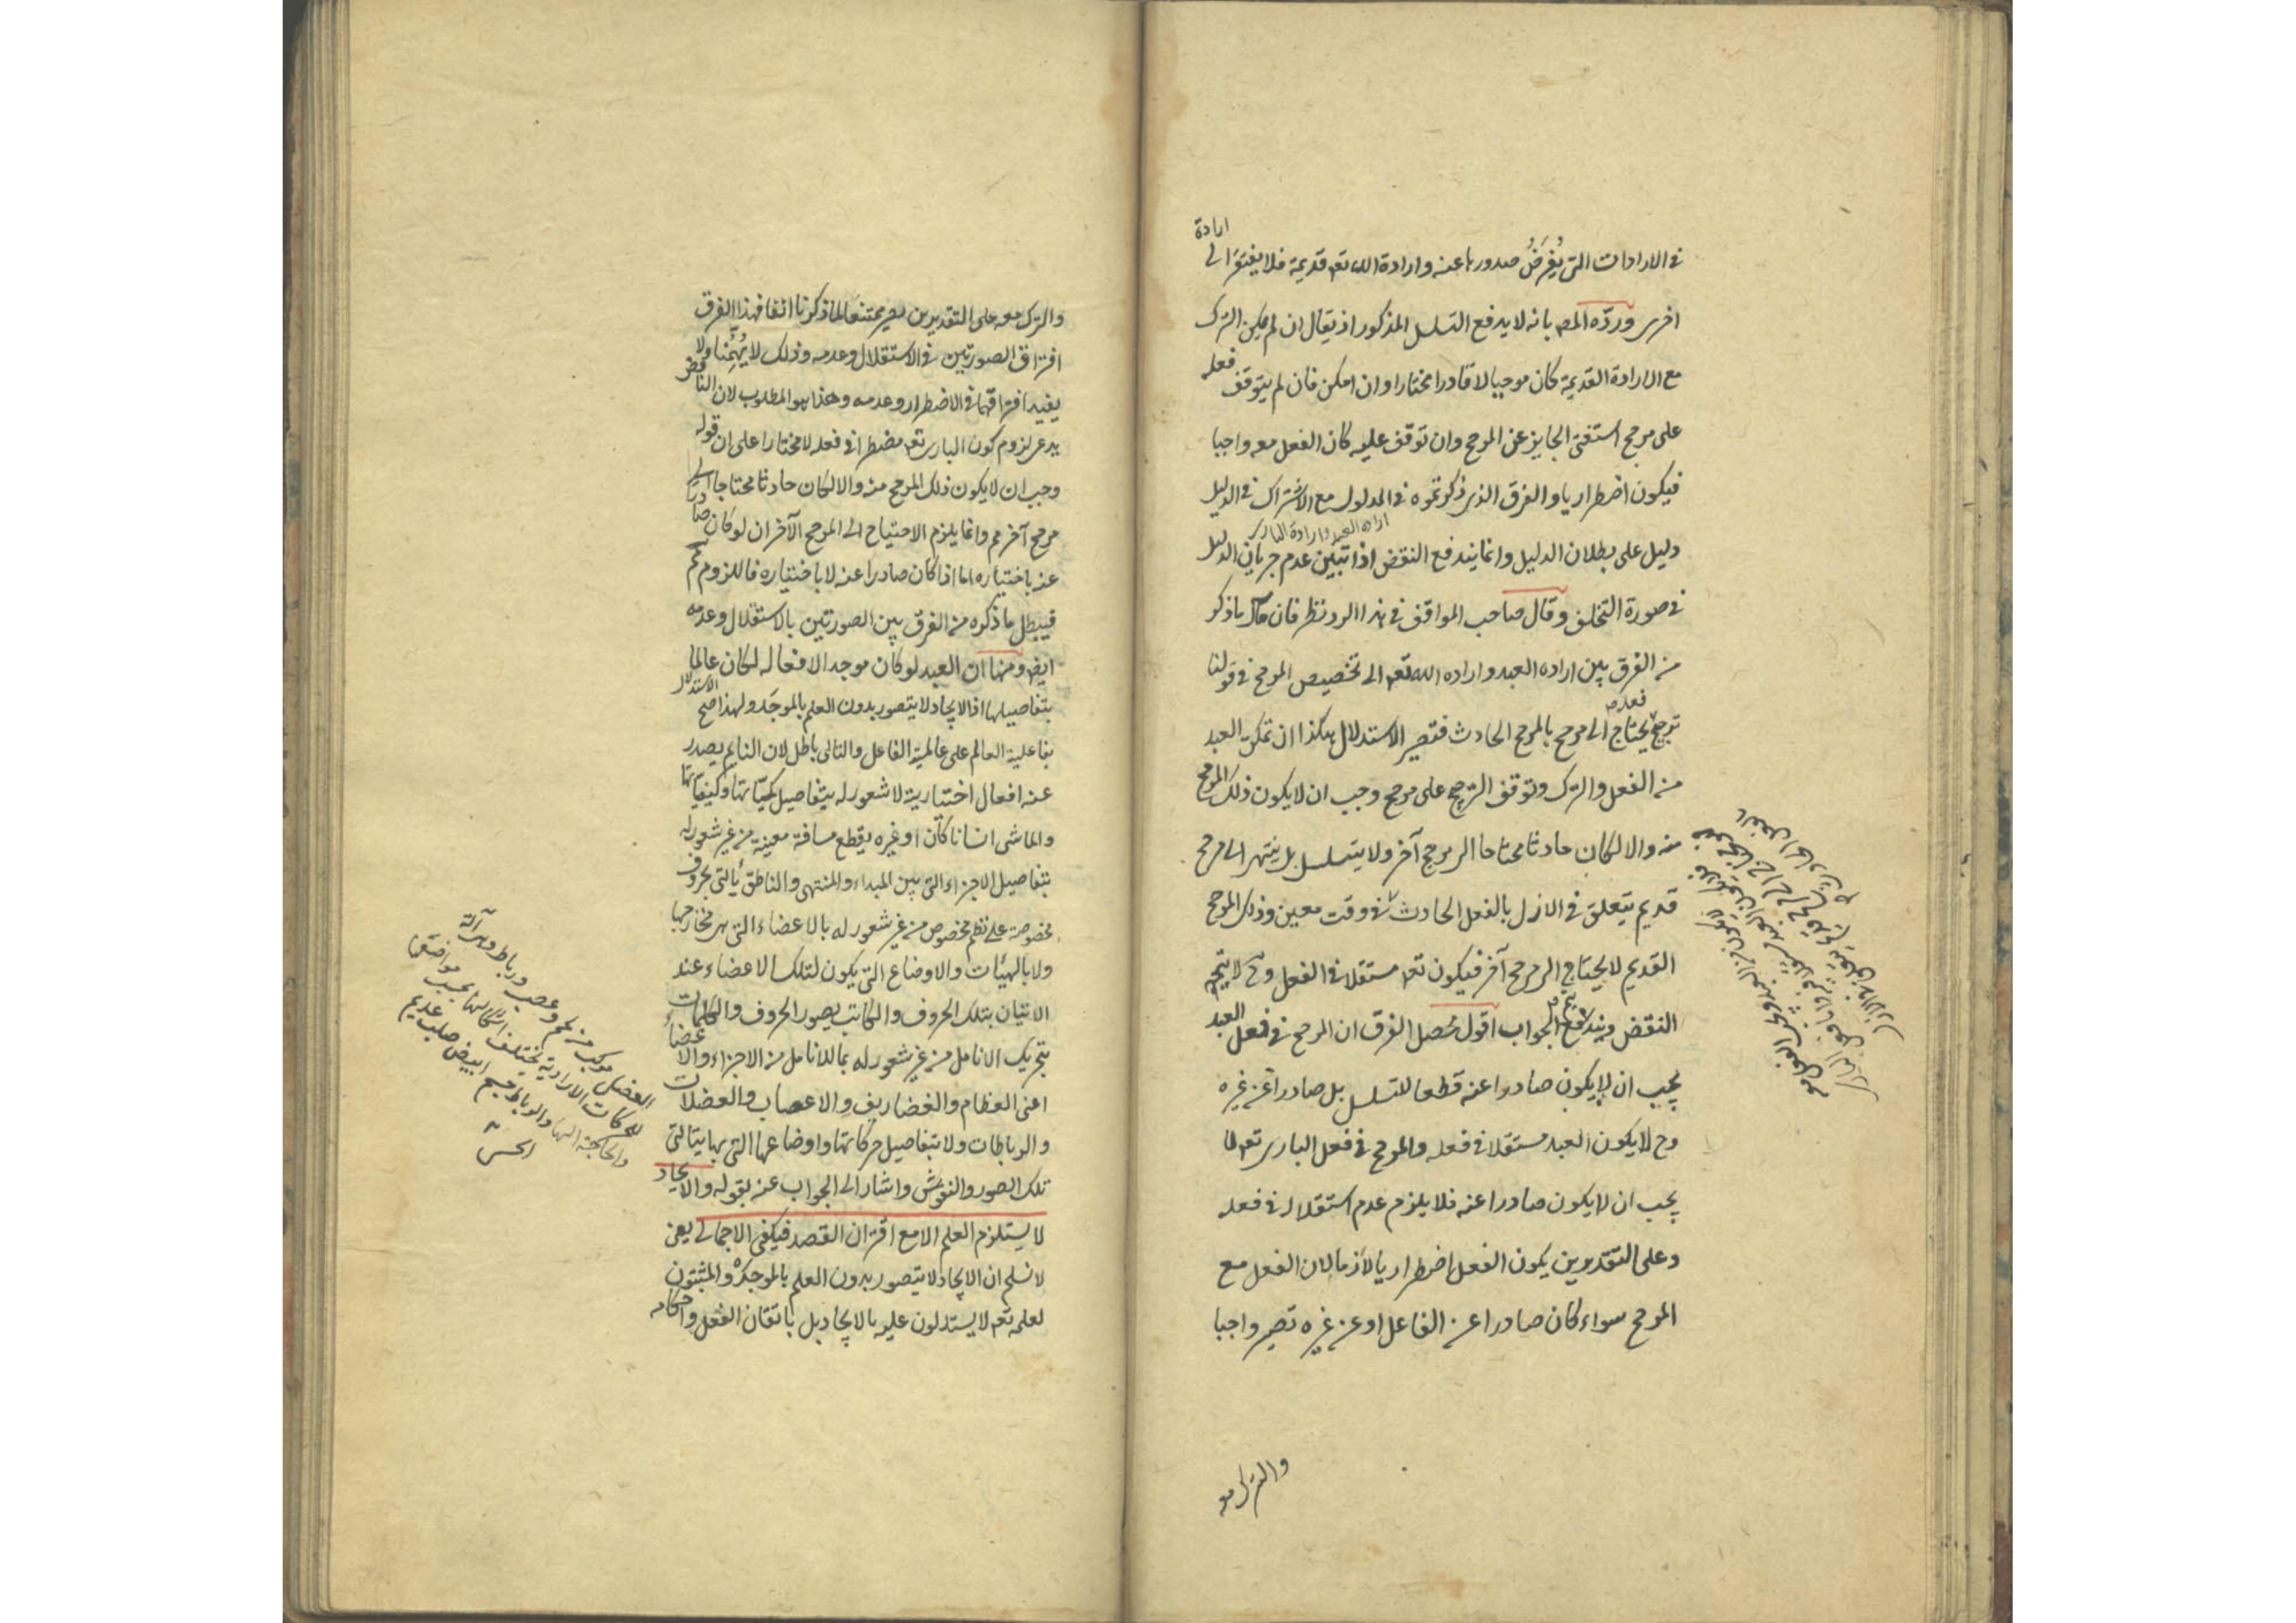 في الارادات التي يُفرَضُ صدورها عنه وارادة الله تعه قديمة فلا يفتقر الى ارادة
اخرى وردّه المص بانه لا يدفع التسلسل المذكور اذ يقال ان لم يمكن الترك
مع الارادة القديمة كان موجبا لا قادرا مختارا وان امكن فان لم يتوقف فعله
على مرجح استغنى الجايز عن المرجح وان توقف عليه كان الفعل معه واجبا
فيكون اضطراريا والفرق الذي ذكرتموه في المدلول مع الاشتراك في الدليل
ارادة العبد وارادة البارى
دليل على بطلان الدليل وانما يندفع النقض اذا تبين عدم جريان الدليل
في صورة التخلف وقال صاحب المواقف في هذا الرد نظر فان مآل ما ذكر
من الفرق بين اراده العبد واراده الله تعه الى تخصيص المرجح في قولنا
ترجح فعله يحتاج الى مرجح بالمرجح الحادث فتصير الاستدلال هكذا ان تمكن العبد
من الفعل والترك وتوقف الترجح على مرجح وجب ان لا يكون ذلك المرجح
منه والا لكان حادثا محتاجا الى مرجح آخر ولا يتسلسل بل ينتهى الى مرجح
قديم يتعلق في الازل بالفعل الحادث في وقت معين وذلك المرجح
القديم لا يحتاج الى مرجح آخر فيكون تعه مستقلا في الفعل وح لا يتجه
النقض ويتم الجواب اقول محصل الفرق ان المرجح في فعل العبد
يجب ان لا يكون صادرا عنه قطعا للتسلسل بل صادرا عن غيره
وح لا يكون العبد مستقلا في فعله والمرجح في فعل البارى تعه لا
يجب ان لا يكون صادرا عنه فلا يلزم عدم استقلاله في فعله
وعلى التقديرين يكون الفعل اضطراريا لازما لان الفعل مع
المرجح سواء كان صادرا عن الفاعل او عن غيره تصير واجبا
والترك معه
والترك معه على التقديرين يصير ممتنعا لما ذكرنا انفا فهذا الفرق
افتراق الصورتين في الاستقلال وعدمه وذلك لا يُهِمُّنا ولا
يفيد افتراقهما في الاضطرار وعدمه وهذا هو المطلوب لان الناقض
يدعى لزوم كون البارى تعه مضطرا في فعله لا مختارا على ان قوله
وجب ان لا يكون ذلك المرجح منه والا لكان حادثا محتاجا الى
مرجح آخر مم وانما يلزم الاحتياج الى المرجح الآخر ان لو كان صادرا
عنه باختياره اما اذا كان صادرا عنه لا باختياره فاللزوم مم
فيبطل ما ذكره من الفرق بين الصورتين بالاستقلال وعدمه
ايض ومنها ان العبد لو كان موجد الافعاله لكان عالما
بتفاصيلها اذ الايجاد لا يتصور بدون العلم بالموجَد ولهذا صح الاستدلال
بفاعلية العالم على عالمية الفاعل والتالى باطل لان النايم يصدر
عنه افعال اختيارية لا شعور له بتفاصيل كمياتها وكيفياتها
والماشى انسانا كان او غيره يقطع مسافة معينة من غير شعور له
بتفاصيل الاجزاء التي بين المبداء والمنتهى والناطق يأتى بحروف
مخصوصة على نظم مخصوص من غير شعور له بالاعضاء التي هي مخارجها
ولا بالهيئات والاوضاع التي يكون لتلك الاعضاء عند
الاتيان بتلك الحروف والكاتب يصور الحروف والكلمات
بتحريك الانامل من غير شعور له بما للانامل من الاجزاء والاعضاء
اعنى العظام والغضاريف والاعصاب والعضلات
والرباطات ولا بتفاصيل حركاتها واوضاعها التي بها يتأتى
تلك الصور والنقوش واشار الى الجواب عنه بقوله والايجاد
لا يستلزم العلم الا مع اقتران القصد فيكفى الاجمالى يعنى
لا نسلم ان الايجاد لا يتصور بدون العلم بالموجد والمثبتون
لعلمه تعه لا يستدلون عليه بالايجاد بل باتقان الفعل واحكامه
العضل مركب من لحم وعصب ورباط وهى آلة
للحركات الارادية يختلف اشكالها بحسب مواضعها
والحاجة اليها والرباط جسم ابيض صلب عديم
الحس